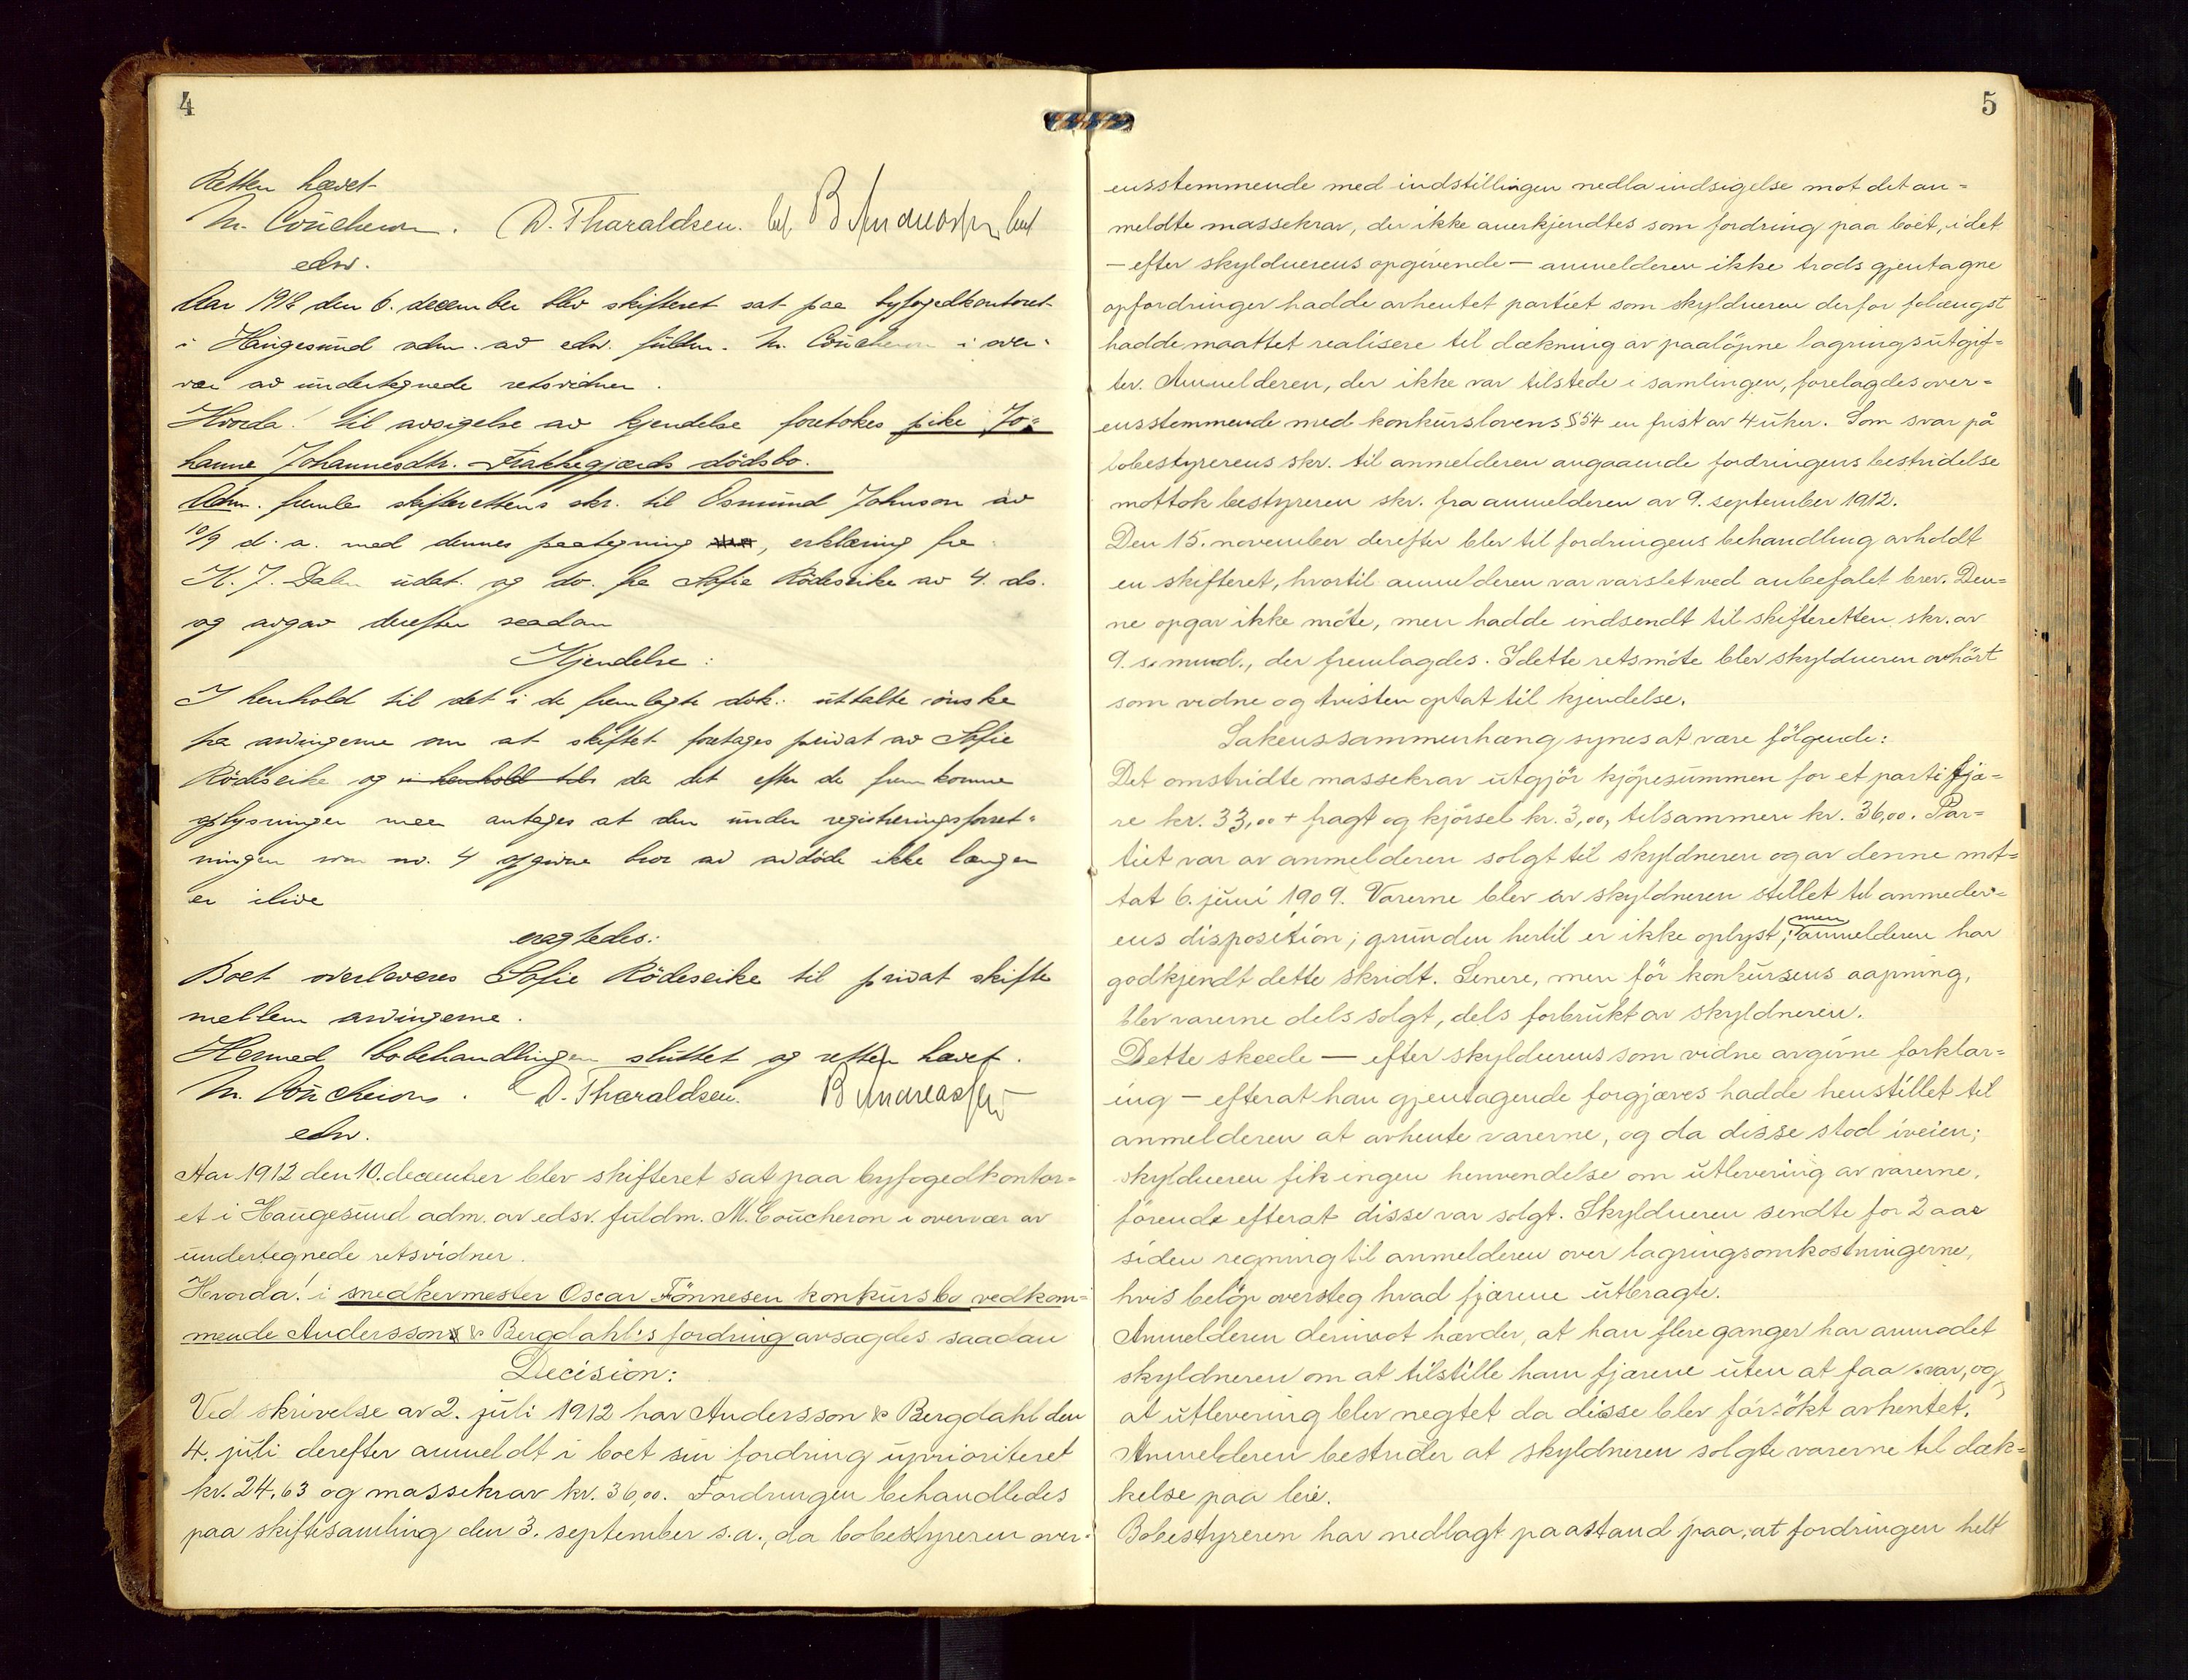 4
Retten hævet
M. Coucheron. D. Tharaldsen. bef. B Andreassen bef
edsv.
Aar 1912 den 6. december blev skifteret sat paa byfogedkontoret
i Haugesund adm. av edsv. fuldm. M. Coucheron i over-
vær av undertegnede retsvidner.
Hvorda! til avsigelse av kjendelse foretokes pike Jo-
hanne Johannesdtr. Frakkegjærds dödsbo.
Adm. fremla skifterettens skr. til Osmund Johnson av
10/9 d. a. med dennes paategning, erklæring fra
K. J. Dalen udat. og do. fra Sofie Rödeseike av 4. ds.
og avgav derefter saadan
Kjendelse:
I henhold til det i de fremlagte dok. uttalte önske
fra arvingerne om at skiftet foretages privat av Sofie
Rödeseike og i henhold til da det efter de fremkomne
oplysninger maa antages at den under registreringsforret-
ningen som no. 4 opgivne bror av avdöde ikke længer
er ilive
eragtedes:
Boet overleveres Sofie Rödeseike til privat skifte
mellem arvingerne.
Hermed bobehandlingen sluttet og retten hævet.
M. Coucheron. D. Tharaldsen. B Andreassen
edsv.
Aar 1912 den 10. december blev skifteret sat paa byfogedkontor-
et i Haugesund adm. av edsv. fuldm. M. Coucheron i overvær av
undertegnede retsvidner.
Hvorda! i snedkermester Oscar Fönnesen konkursbo vedkom-
mende Andersson & Bergdahl's fordring avsagdes saadan
Decision:
Ved skrivelse av 2. juli 1912 har Andersson & Bergdahl den
4. juli derefter anmeldt i boet sin fordring uprioriteret
kr. 24,63 og massekrav kr. 36,00. Fordringen behandledes
paa skiftesamling den 3. september s.a., da bobestyreren over-
5
ensstemmende med indstillingen nedla indsigelse mot det an-
meldte massekrav, der ikke anerkjendtes som fordring paa boet, idet
— efter skyldnerens opgivende — anmelderen ikke trods gjentagne
opfordringer hadde avhentet partiet som skyldneren derfor forlængst
hadde maattet realisere til dækning av paalöpne lagringsutgif-
ter. Anmelderen, der ikke var tilstede i samlingen, forelagdes over-
ensstemmende med konkurslovens §54 en frist av 4 uker. Som svar på
bobestyrerens skr. til anmelderen angaaende fordringens bestridelse
mottok bestyreren skr. fra anmelderen av 9. september 1912.
Den 15. november derefter blev til fordringens behandling avholdt
en skifteret, hvortil anmelderen var varslet ved anbefalet brev. Den-
ne opgav ikke möte, men hadde indsendt til skifteretten skr. av
9. s. mnd., der fremlagdes. I dette retsmöte blev skyldneren avhört
som vidne og tvisten optat til kjendelse.
Sakens sammenhæng synes at være fölgende:
Det omstridte massekrav utgjör kjöpesummen for et parti fjæ-
re kr. 33,00 + fragt og kjörsel kr. 3,00, tilsammen kr. 36,00. Par-
tiet var av anmelderen solgt til skyldneren og av denne mot-
tat 6. juni 1909. Varerne blev av skyldneren stillet til anmelder-
ens disposition; grunden hertil er ikke oplyst; men anmelderen har
godkjendt dette skridt. Senere, men för konkursens aapning,
blev varerne dels solgt, dels forbrukt av skyldneren.
Dette skeede — efter skyldnerens som vidne avgivne forklar-
ing — efterat han gjentagende forgjæves hadde henstillet til
anmelderen at avhente varerne, og da disse stod iveien;
skyldneren fik ingen henvendelse om utlevering av varerne,
förend efterat disse var solgt. Skyldneren sendte for 2 aar
siden regning til anmelderen over lagringsomkostningerne,
hvis belöp oversteg hvad fjærene utbragte.
Anmelderen derimot hævder, at han flere ganger har anmodet
skyldneren om at tilstille ham fjærene uten at faa svar, og
at utlevering blev negtet da disse blev forsökt avhentet.
Anmelderen bestrider at skyldneren solgte varerne til dæk-
kelse paa leie.
Bobestyreren har nedlagt paastand paa, at fordringen helt